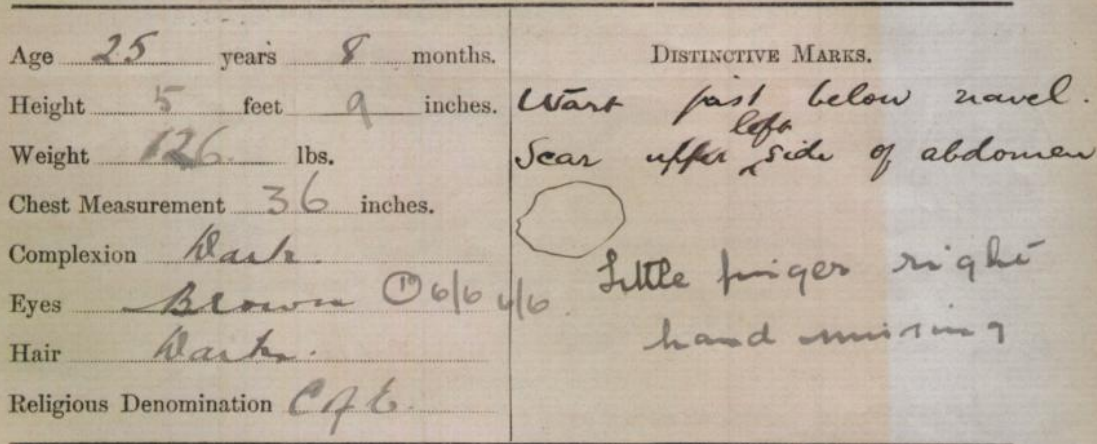 Age 25 years 8 months.
Height 5 feet 9 inches.
Weight 126 lbs.
Chest Measurement 36 inches.
Complexion Dark.
Eyes Brown 6/6 6/6.
Hair Dark.
Religious Denomination C of E.
DISTINCTIVE MARKS.
Wart just below navel.
Scar upper left side of abdomen
Little finger right
hand missing